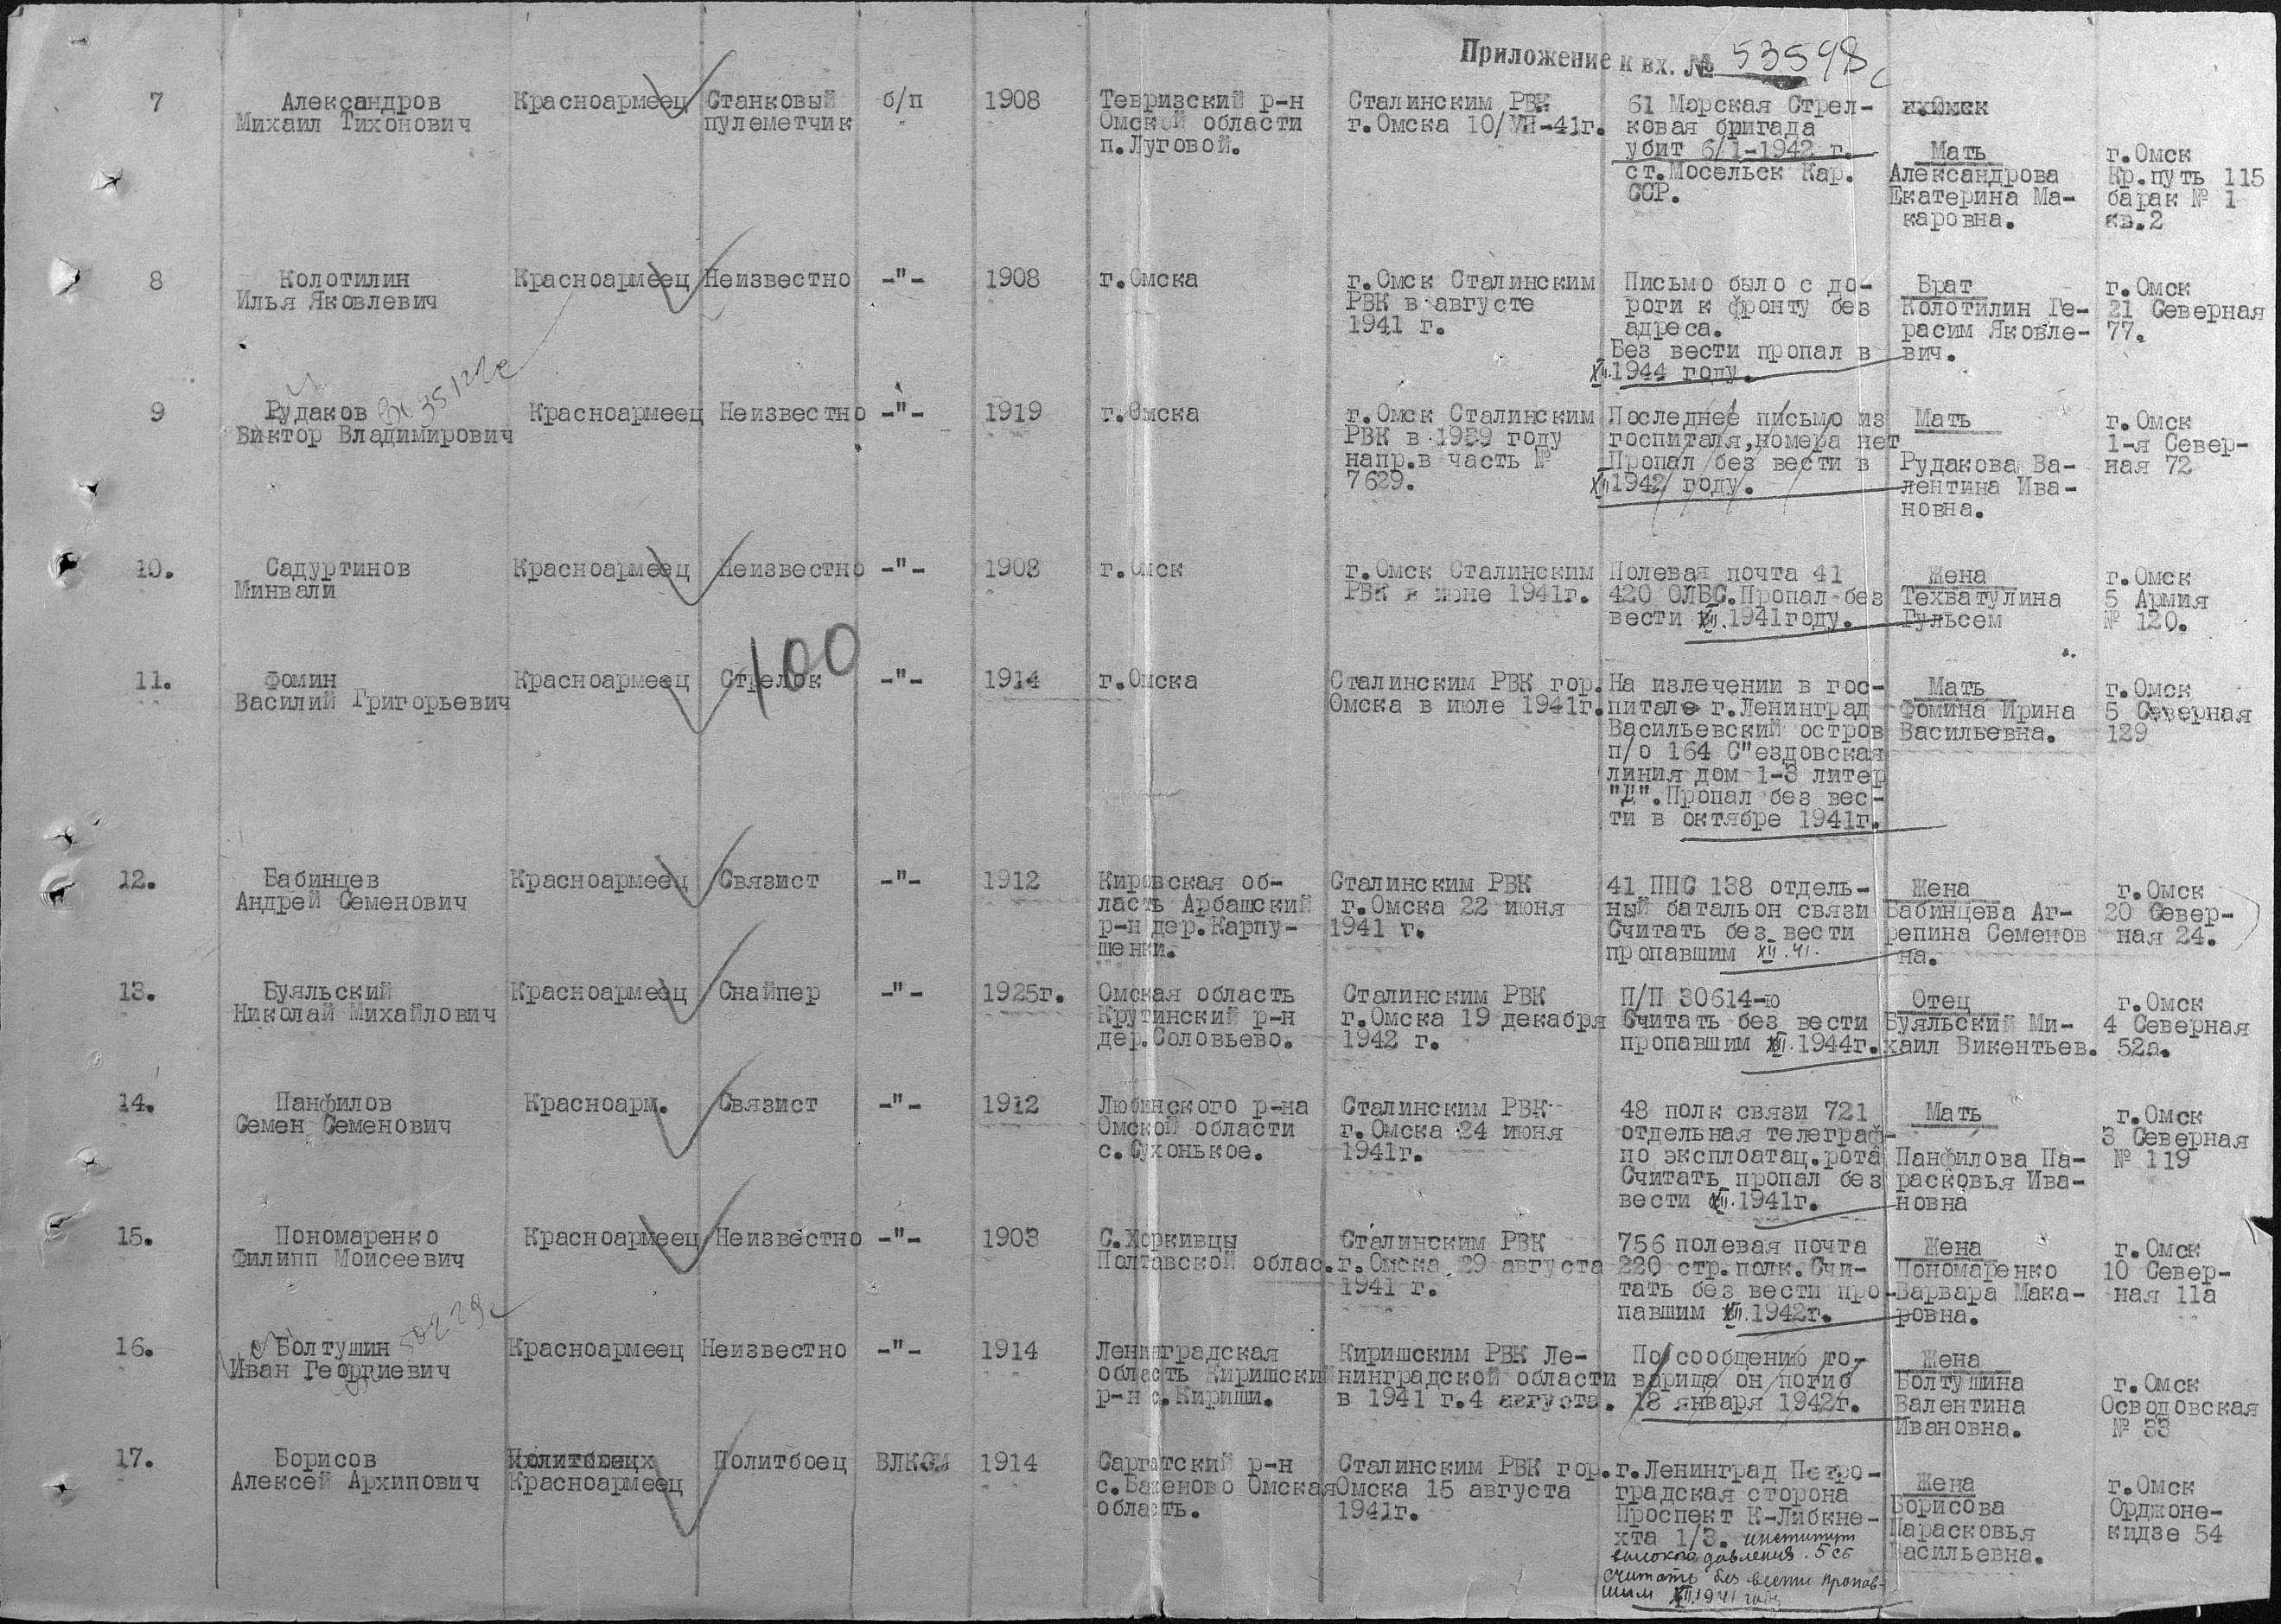 Приложение к вх. № 53598с
7
Александров
Михаил Тихонович
Красноармеец
Станковый
пулеметчик
б/п
1908
Тевризский р-н
Омской области
п.Луговой.
Сталинским РВК
г.Омска 10/УП-41г.
61 Морская Стрел-
ковая бригада
убит 6/1-1942 г.
ст.Мосельск Кар.
ССР.
Мать
Александрова
Екатерина Ма-
каровна.
г.Омск
Кр.путь 115
барак № 1
кв.2
8
Колотилин
Илья Яковлевич
Красноармеец
Неизвестно
-"-
1908
г.Омска
г.Омск Сталинским
РВК в августе
1941 г.
Письмо было с до-
роги к фронту без
адреса.
Без вести пропал в
XII.1944 году.
Брат
Колотилин Ге-
расим Яковле-
вич.
г.Омск
21 Северная
77.
9
Рудаков
Виктор Владимирович
Красноармеец
Неизвестно
-"-
1919
г.Омска
г.Омск Сталинским
РВК в 1939 году
напр.в часть №
7629.
Последнее письмо из
госпиталя,номера нет
Пропал без вести в
XII 1942 году.
Мать
Рудакова Ва-
лентина Ива-
новна.
г.Омск
1-я Север-
ная 72
10.
Садуртинов
Минвали
Красноармеец
Неизвестно
-"-
1903
г.Омск
г.Омск Сталинским
РВК в июне 1941г.
Полевая почта 41
420 ОЛБС.Пропал без
вести XII.1941году.
Жена
Техватулина
Гульсем
г.Омск
5 Армия
№ 120.
100
11.
Фомин
Василий Григорьевич
Красноармеец
Стрелок
-"-
1914
г.Омска
Сталинским РВК гор.
Омска в июле 1941г.
На излечении в гос-
питале г.Ленинград
Васильевский остров
п/о 164 С"ездовская
линия дом 1-3 литер
"Д".Пропал без вес-
ти в октябре 1941г.
Мать
Фомина Ирина
Васильевна.
г.Омск
5 Северная
129
12.
Бабинцев
Андрей Семенович
Красноармеец
Связист
-"-
1912
Кировская об-
ласть Арбашский
р-н дер.Карпу-
шенки.
Сталинским РВК
г.Омска 22 июня
1941 г.
41 ППС 138 отдель-
ный батальон связи
Считать без вести
пропавшим XII.41.
Жена
Бабинцева Аг-
репина Семенов
на.
г.Омск
20 Север-
ная 24.
13.
Буяльский
Николай Михайлович
Красноармеец
Снайпер
-"-
1925г.
Омская область
Крутинский р-н
дер.Соловьево.
Сталинским РВК
г.Омска 19 декабря
1942 г.
П/П 30614-ю
Считать без вести
пропавшим XII.1944г.
Отец
Буяльский Ми-
хаил Викентьев.
г.Омск
4 Северная
52а.
14.
Панфилов
Семен Семенович
Красноарм.
Связист
-"-
1912
Любинского р-на
Омской области
с.Сухонькое.
Сталинским РВК
г.Омска 24 июня
1941г.
48 полк связи 721
отдельная телеграф-
но эксплоатац.рота
Считать пропал без
вести XII.1941г.
Мать
Панфилова Па-
расковья Ива-
новна
г.Омск
3 Северная
№ 119
15.
Пономаренко
Филипп Моисеевич
Красноармеец
Неизвестно
-"-
1903
С.Хоркивцы
Полтавской облас.
Сталинским РВК
г.Омска 29 августа
1941 г.
756 полевая почта
220 стр.полк.Счи-
тать без вести про-
павшим XII.1942г.
Жена
Пономаренко
Варвара Мака-
ровна.
г.Омск
10 Север-
ная 11а
16.
Болтушин
Иван Георгиевич
Красноармеец
Неизвестно
-"-
1914
Ленинградская
область Киришский
р-н с.Кириши.
Киришским РВК Ле-
нинградской области
в 1941 г.4 августа.
По сообщению то-
варища он погиб
18 января 1942г.
Жена
Болтушина
Валентина
Ивановна.
г.Омск
Осводовская
№ 33
17.
Борисов
Алексей Архипович
Красноармеец
Политбоец
ВЛКСМ
1914
Саргатский р-н
с.Баженово Омская
область.
Сталинским РВК гор.
Омска 15 августа
1941г.
г.Ленинград Петро-
градская сторона
Проспект К-Либкне-
хта 1/3. институт
высокого давления. 5 сб
считать без вести пропав-
шим XII.1941 году
Жена
Борисова
Парасковья
Васильевна.
г.Омск
Орджоне-
кидзе 54